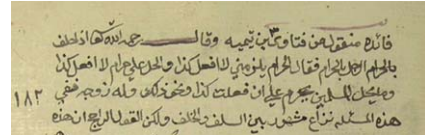 فائدة منقول من فتاوى ابن تيميه وقال رحمه الله كما اذا حلف
بالحرام الحل بالحرام فقال الحرام يلزمني لا افعل كذا والحل علي حرام لا افعل كذا
وما يحل للمسلمين يحرم علي ان فعلت كذا ونحو ذلك وله زوجه ففي
١٨٢
هذه المسئله نزاع مشهور بين السلف والخلف ولكن القول الراجح ان هذه